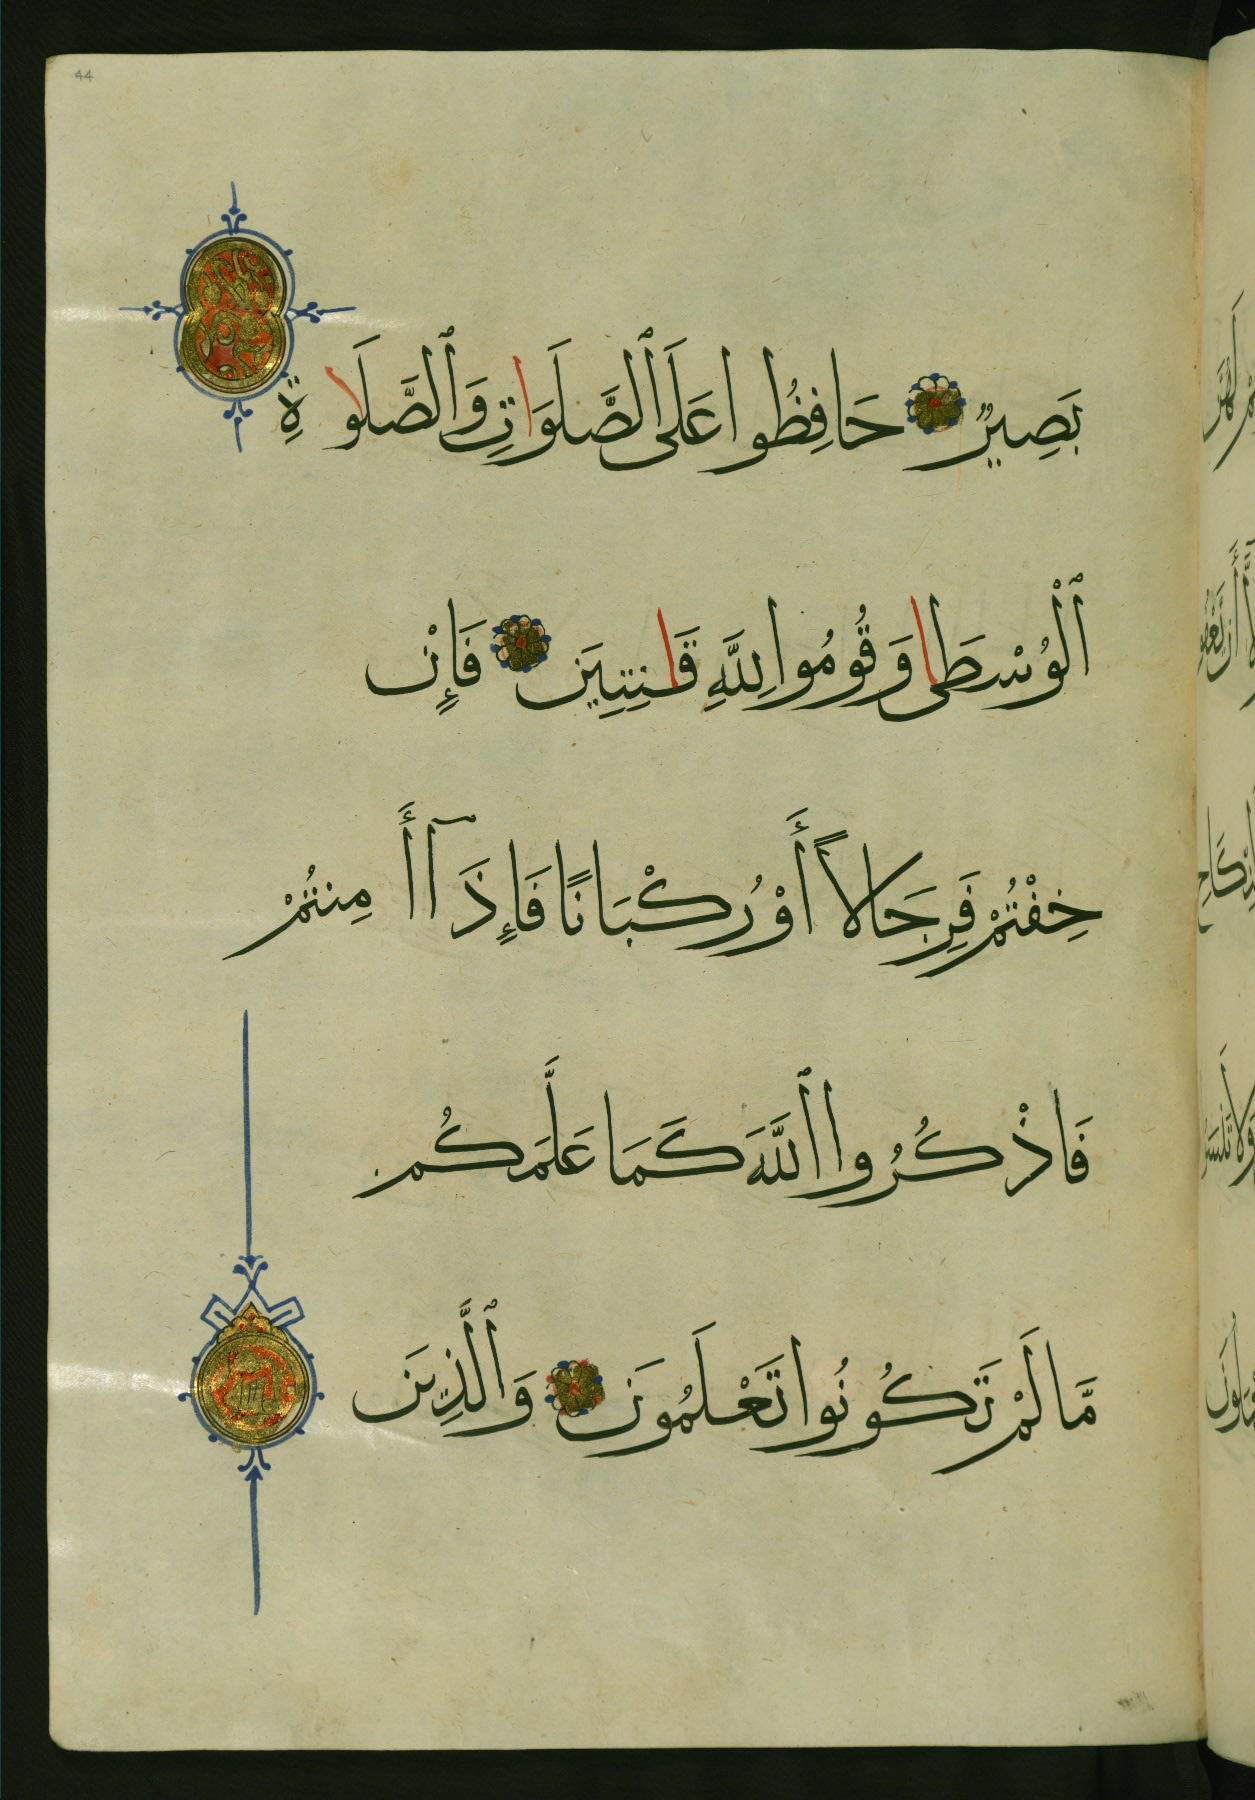 44
بَصِيرٌ حَافِظُوا عَلَى ٱلصَّلَوَاتِ وَٱلصَّلَواةِ
ٱلْوُسْطَىا وَقُومُوا لِلَّهِ قَانِتِينَ فَإِنْ
خِفْتُمْ فَرِجَالاً أَوْ رُكْبَانًا فَإِذَآ أَمِنتُمْ
فَاذْكُرُوا ٱللَّهَ كَمَا عَلَّمَكُم
مَّا لَمْ تَكُونُوا تَعْلَمُونَ وَٱلَّذِينَ